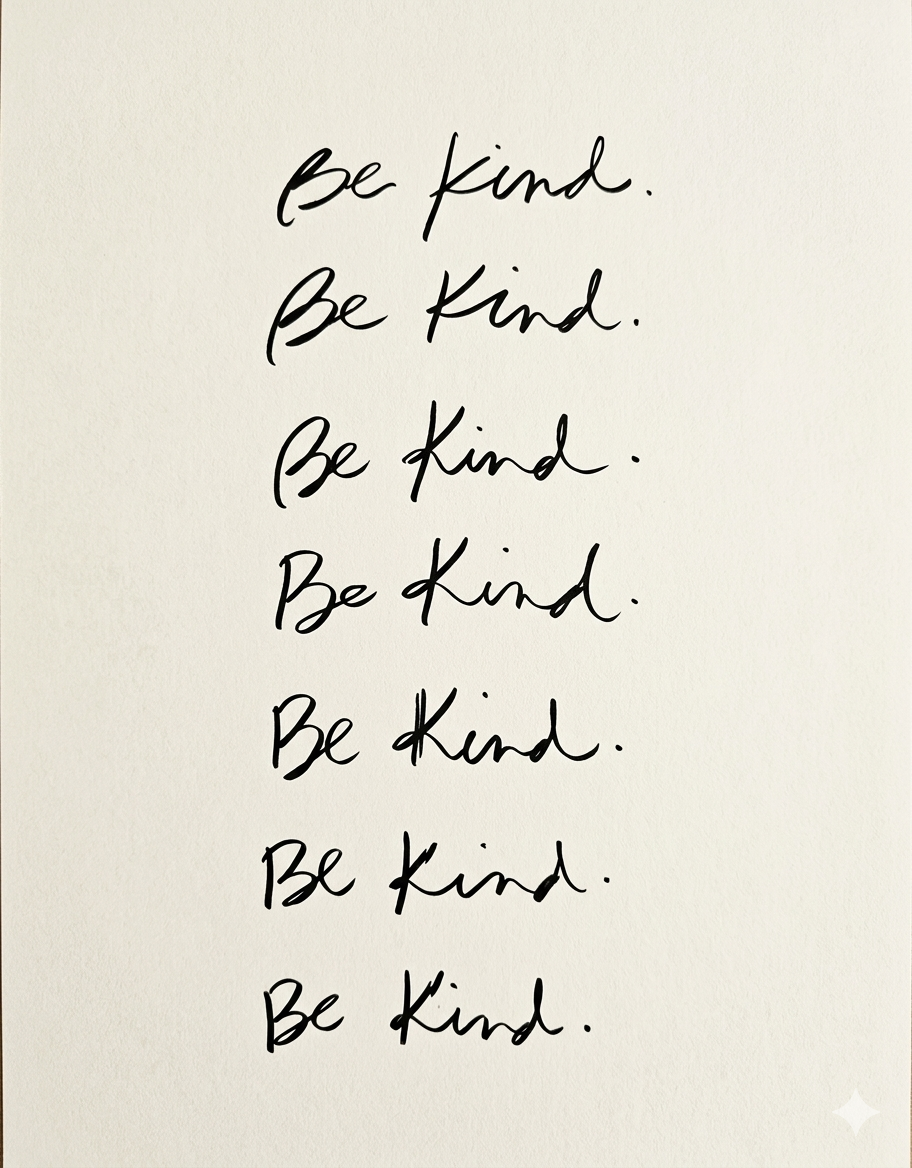 Be Kind.
Be Kind.
Be Kind.
Be Kind.
Be Kind.
Be Kind.
Be Kind.